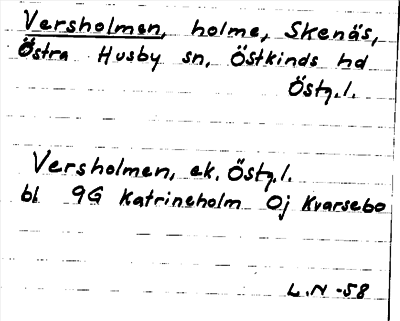 Versholmen, holme, Skenäs,
Östra Husby sn, Östkinds hd
Östg.l.
Versholmen, ek. Östg.l.
bl 9G Katrineholm 0j Kvarsebo
L.N -58